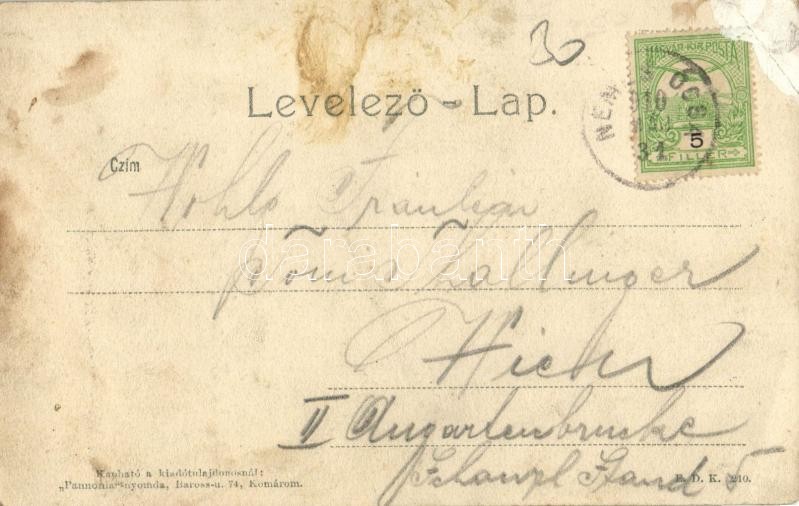 30
MAGYAR·KIR·POSTA
5
FILLÉR
Levelező - Lap.
Czím
Wohlg Fräulein
Zallinger
Wien
II Augartenbrücke
Schanzl Stand 5
Kapható a kiadótulajdonosnál:
„Pannonia" nyomda, Baross-u. 74, Komárom.
E. D. K. 210.
darabanth